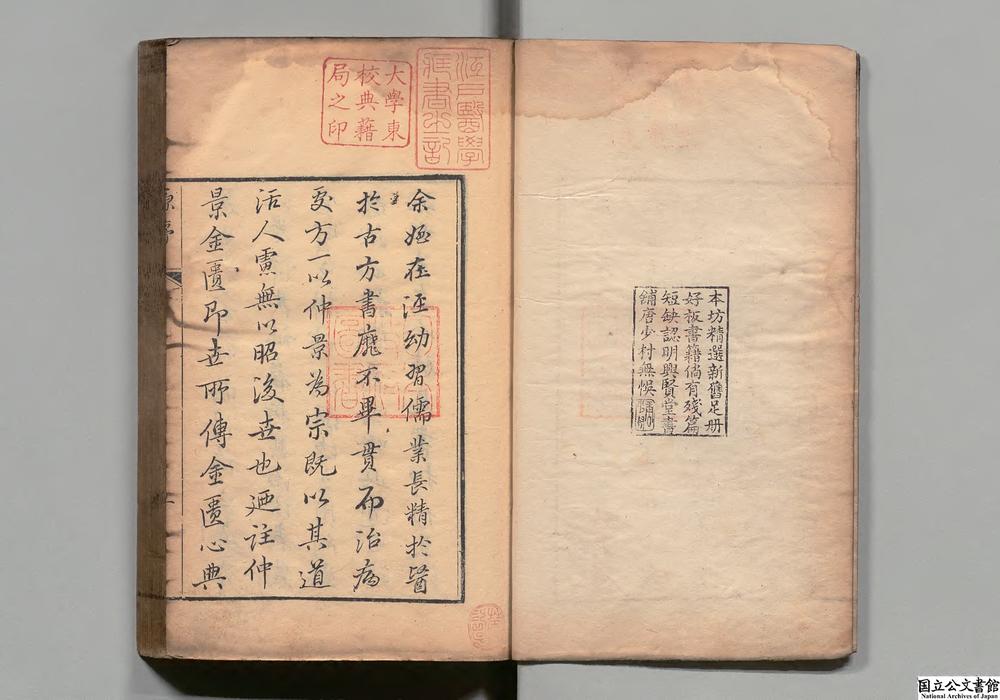 本坊精選新舊足册
好板書籍倘有殘篇
短缺認明興賢堂書
舖唐少村無悞
江戸醫學
藏書之記
大學東
校典藉
局之印
余姪在涇幼習儒業長精於醫
於古方書靡不畢貫而治病
處方一以仲景為宗既以其道
活人慮無以昭後世也迺註仲
景金匱即世所傳金匱心典
国立公文書館
National Archives of Japan